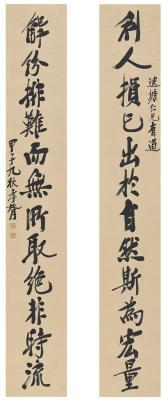 利人損己出於自然斯為宏量
逸塘仁兄有道
解紛排難而無所取絕非時流
甲子九秋孝胥